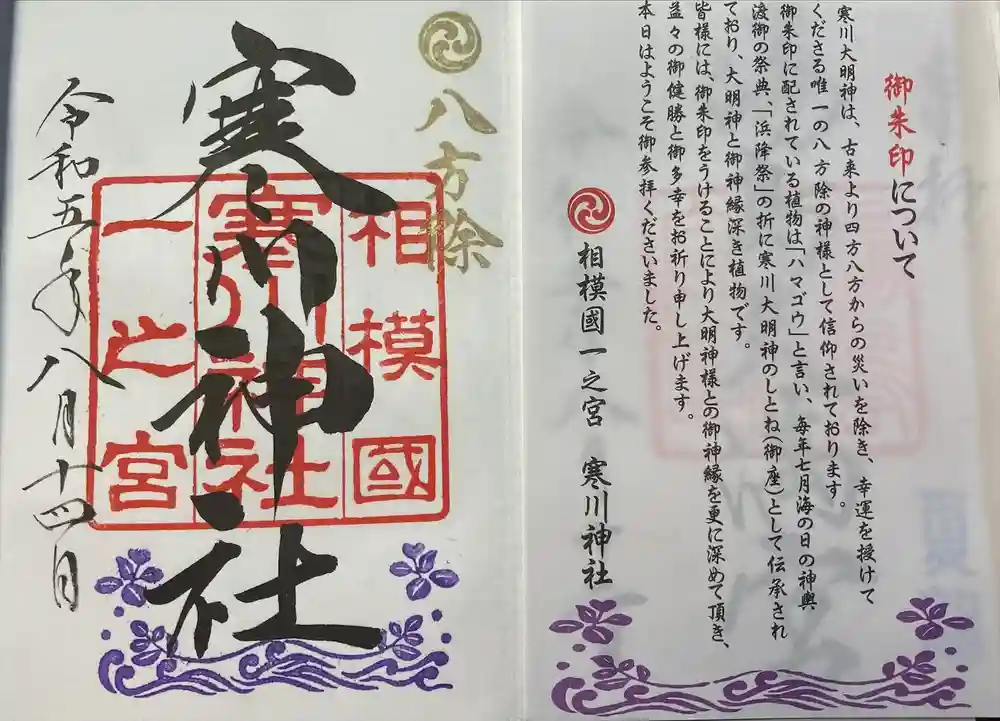 御朱印について
寒川大明神は、古来より四方八方からの災いを除き、幸運を授けて
くださる唯一の八方除の神様として信仰されております。
御朱印に配されている植物は「ハマゴウ」と言い、毎年七月海の日の神輿
渡御の祭典、「浜降祭」の折に寒川大明神のしとね(御座)として伝承され
ており、大明神と御神縁深き植物です。
皆様には、御朱印をうけることにより大明神様との御神縁を更に深めて頂き、
益々の御健勝と御多幸をお祈り申し上げます。
本日はようこそ御参拝くださいました。
相模國一之宮 寒川神社
八方除
寒川神社
相模國
寒川神社
一之宮
令和五年八月十四日